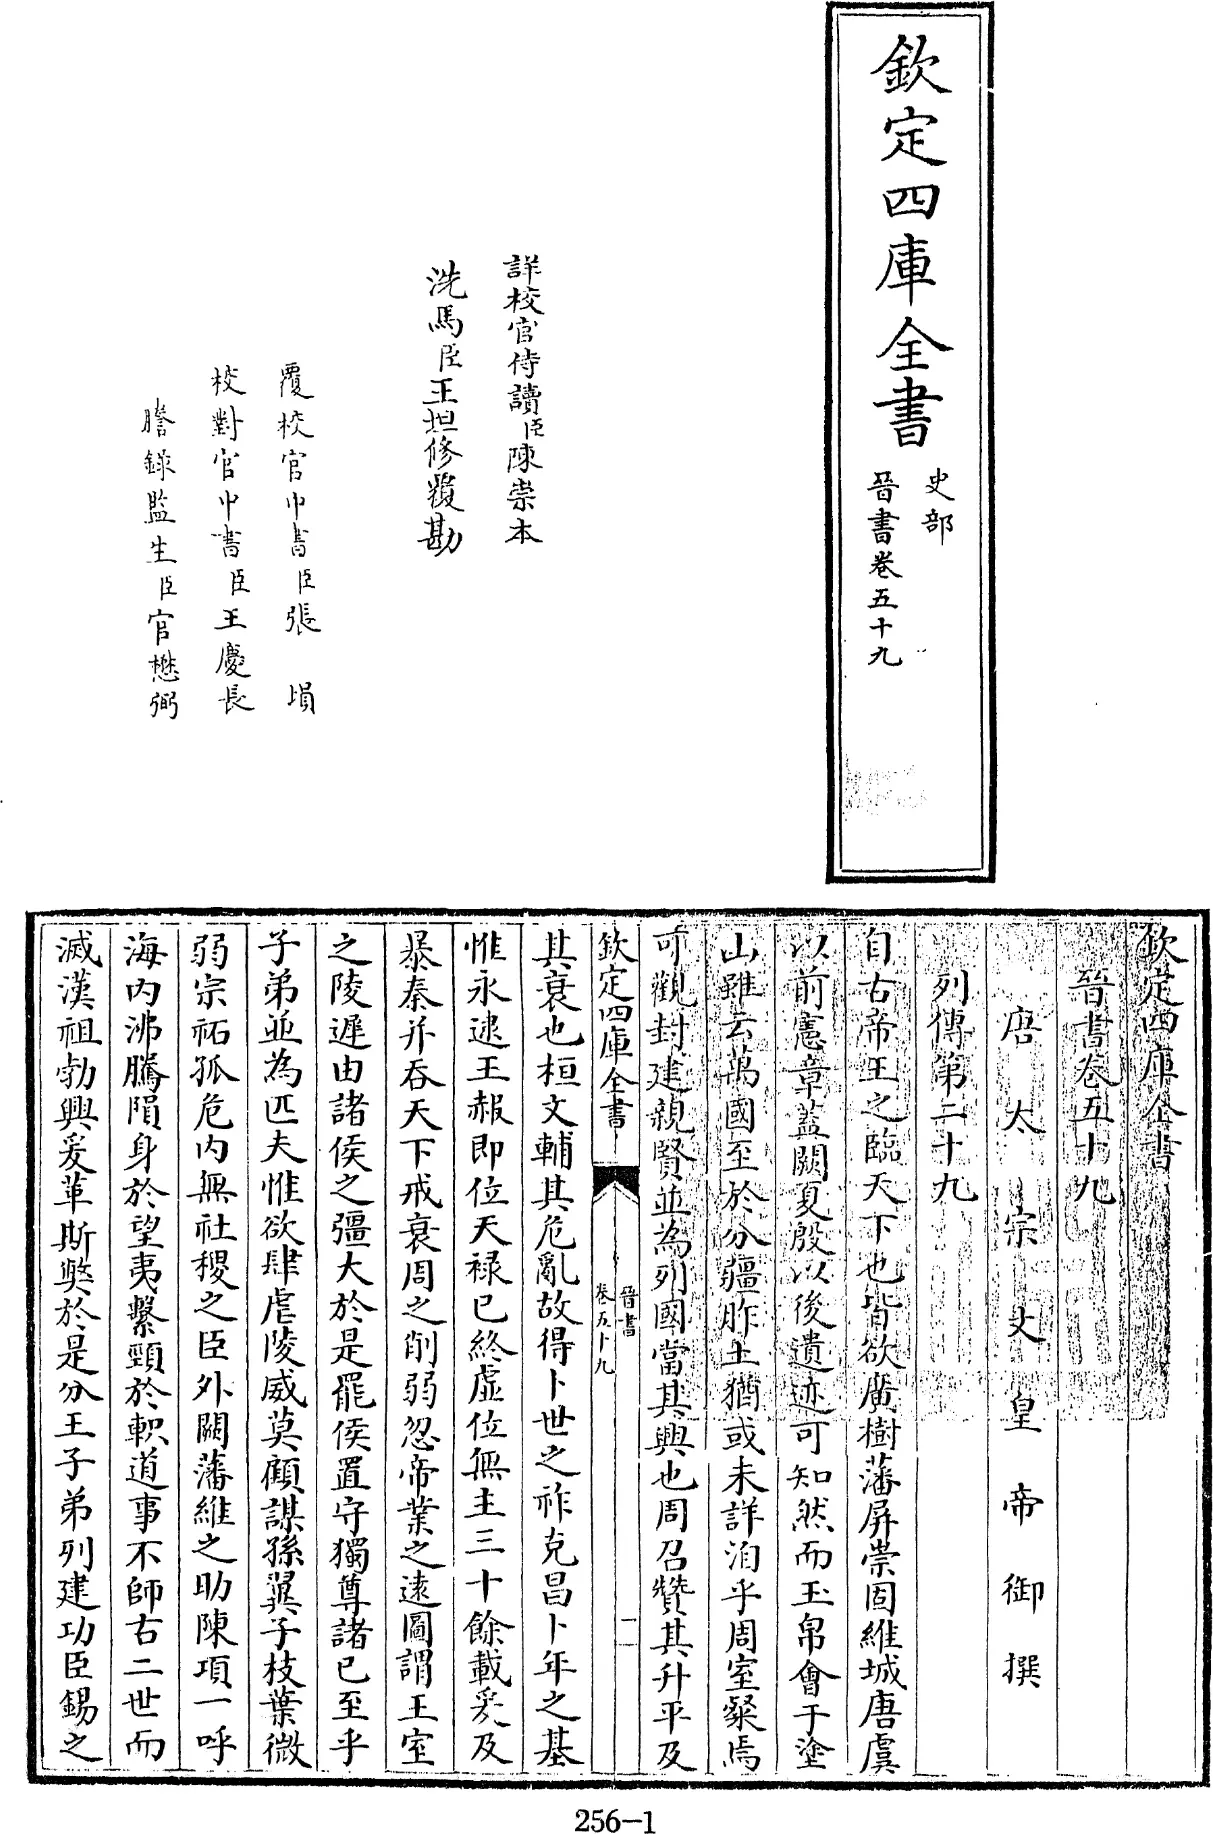 欽定四庫全書
史部
晉書卷五十九
詳校官侍讀臣陳崇本
洗馬臣王坦修覆勘
覆校官中書臣張塤
校對官中書臣王慶長
謄錄監生臣官懋弼
欽定四庫全書
晉書卷五十九
唐太宗文皇帝御撰
列傳第二十九
自古帝王之臨天下也皆欲廣樹藩屏崇固維城唐虞
以前憲章蓋闕夏殷以後遺迹可知然而玉帛會于塗
山雖云萬國至於分疆胙土猶或未詳洎乎周室粲焉
可觀封建親賢並為列國當其興也周召贊其升平及
其衰也桓文輔其危亂故得卜世之祚克昌卜年之基
欽定四庫全書
晉書
卷五十九
一
惟永逮王赧即位天祿已終虛位無主三十餘載爰及
暴秦并吞天下戒衰周之削弱忽帝業之遠圖謂王室
之陵遲由諸侯之彊大於是罷侯置守獨尊諸已至乎
子弟並為匹夫惟欲肆虐陵威莫顧謀孫翼子枝葉微
弱宗祏孤危內無社稷之臣外闕藩維之助陳項一呼
海內沸騰隕身於望夷繫頸於軹道事不師古二世而
滅漢祖勃興爰革斯弊於是分王子弟列建功臣錫之
256-1